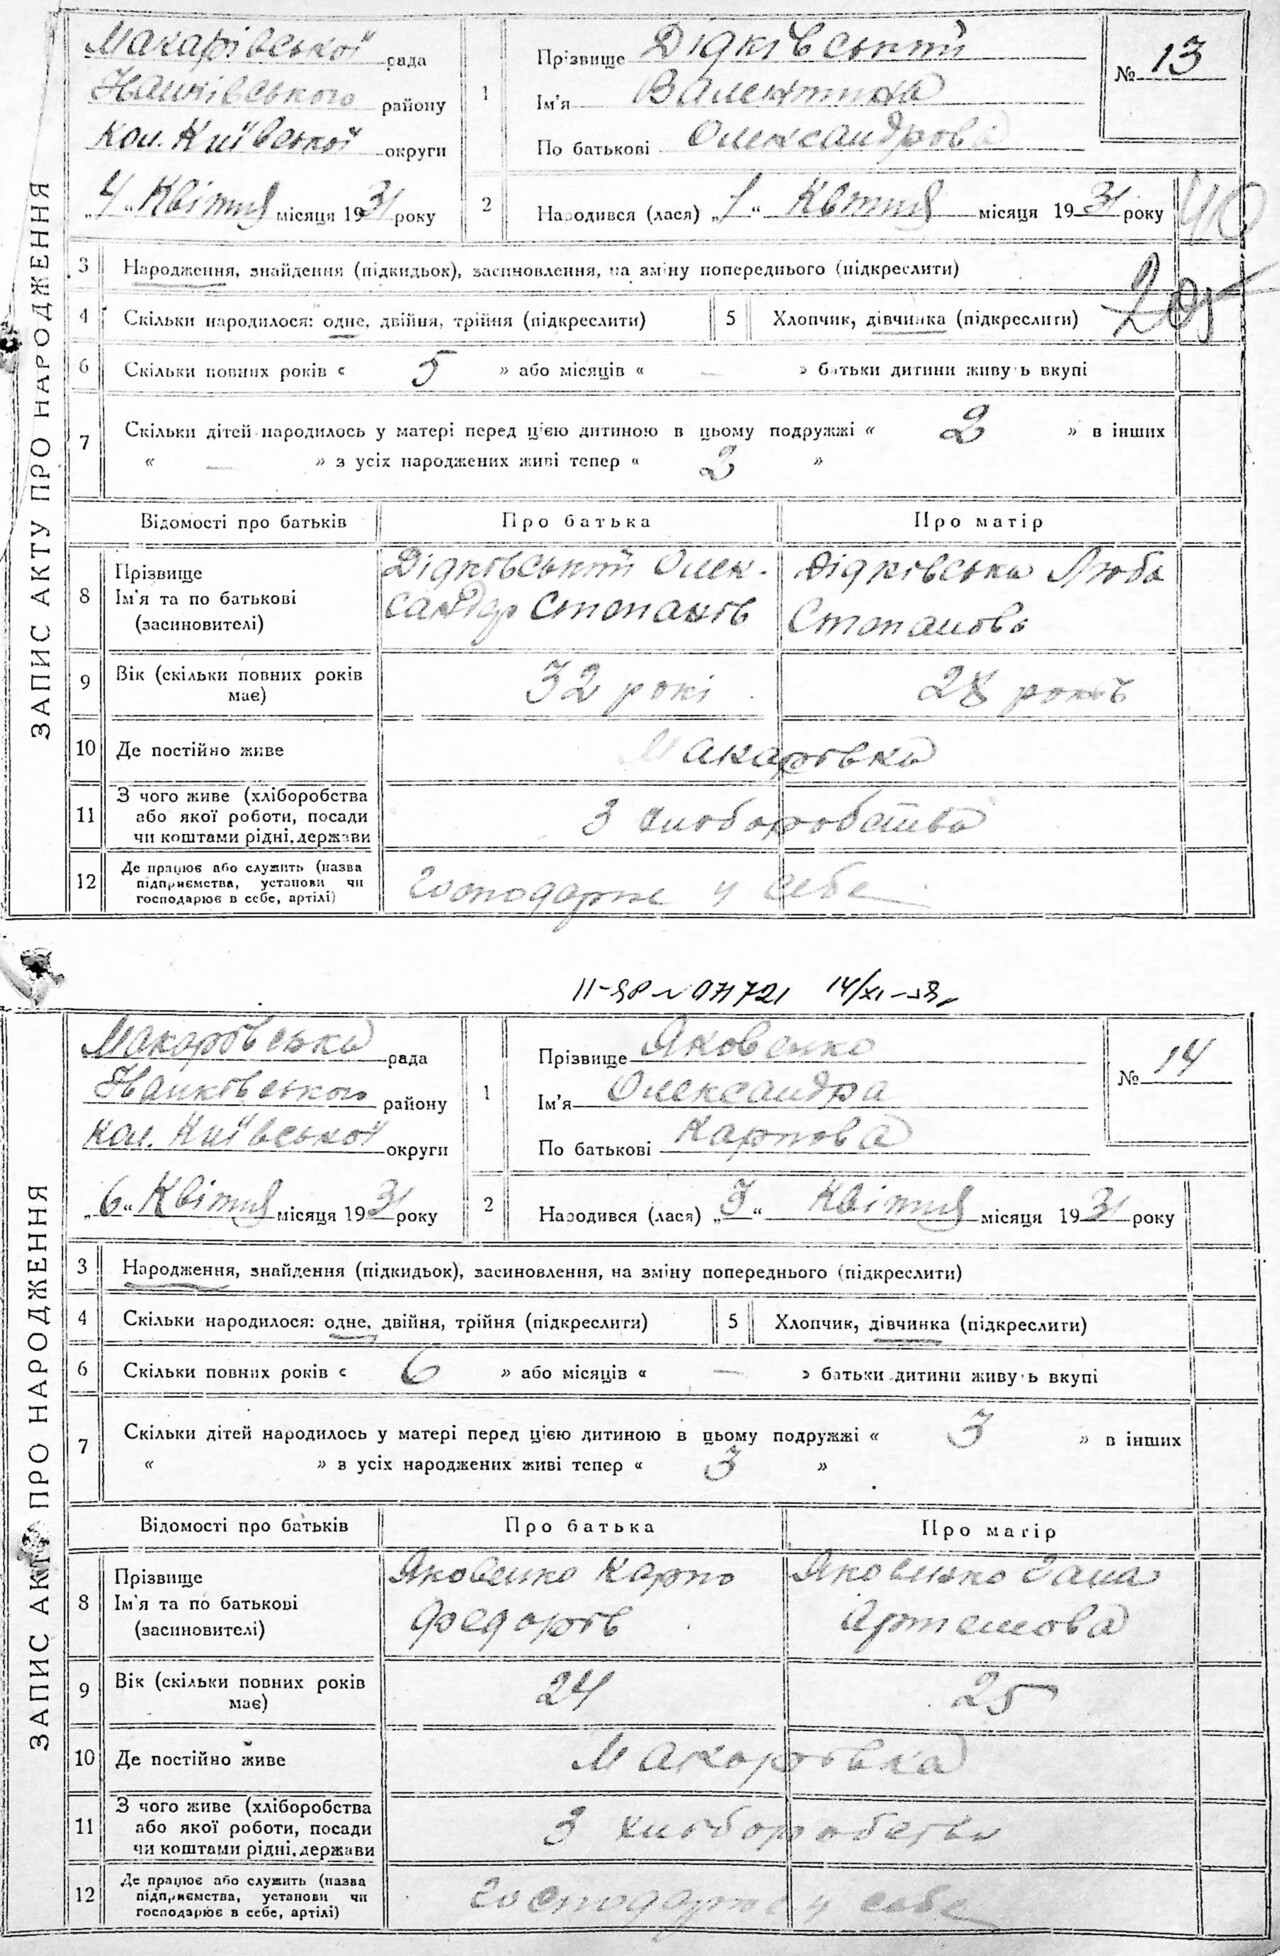 ЗАПИС АКТУ ПРО НАРОДЖЕННЯ
Макарівської рада
Іванківського району
кол. Київської округи
„4“ Квітня місяця 1931 року
1
Прізвище Дідківський
Ім'я Валентина
По батькові Олександрова
№ 13
2
Народився (лася) „1“ Квітня місяця 1931 року
40
205
3 Народження, знайдення (підкидьок), засиновлення, на зміну попереднього (підкреслити)
4 Скільки народилося: одне, двійня, трійня (підкреслити)
5 Хлопчик, дівчинка (підкреслити)
6 Скільки повних років « 5 » або місяців « — » батьки дитини живуть вкупі
7 Скільки дітей народилось у матері перед цією дитиною в цьому подружжі « 2 » в інших
« — » з усіх народжених живі тепер « 2 »
Відомості про батьків Про батька Про матір
8 Прізвище
Ім'я та по батькові
(засиновителі)
Дідківський Олек-
сандер Степанів
Дідківська Люба
Степанова
9 Вік (скільки повних років
має)
32 рокі
28 років
10 Де постійно живе Макарівка
11 З чого живе (хліборобства
або якої роботи, посади
чи коштами рідні, держави
З хліборобства
12 Де працює або служить (назва
підприємства, установи чи
господарює в себе, артілі)
господарює у себе
II-ЯР № 071721 14/XI-
ЗАПИС АКТУ ПРО НАРОДЖЕННЯ
Макарівська рада
Іванківського району
кол. Київської округи
„6“ Квітня місяця 1931 року
1
Прізвище Яковенко
Ім'я Олександра
По батькові Карпова
№ 14
2
Народився (лася) „3“ Квітня місяця 1931 року
3 Народження, знайдення (підкидьок), засиновлення, на зміну попереднього (підкреслити)
4 Скільки народилося: одне, двійня, трійня (підкреслити)
5 Хлопчик, дівчинка (підкреслити)
6 Скільки повних років « 6 » або місяців « — » батьки дитини живуть вкупі
7 Скільки дітей народилось у матері перед цією дитиною в цьому подружжі « 3 » в інших
« » з усіх народжених живі тепер « 3 »
Відомості про батьків Про батька Про матір
8 Прізвище
Ім'я та по батькові
(засиновителі)
Яковенко Карпо
Федорів
Яковенко Ганна
Артемова
9 Вік (скільки повних років
має)
24
25
10 Де постійно живе Макарівка
11 З чого живе (хліборобства
або якої роботи, посади
чи коштами рідні, держави
З хліборобства
12 Де працює або служить (назва
підприємства, установи чи
господарює в себе, артілі)
господарює у себе